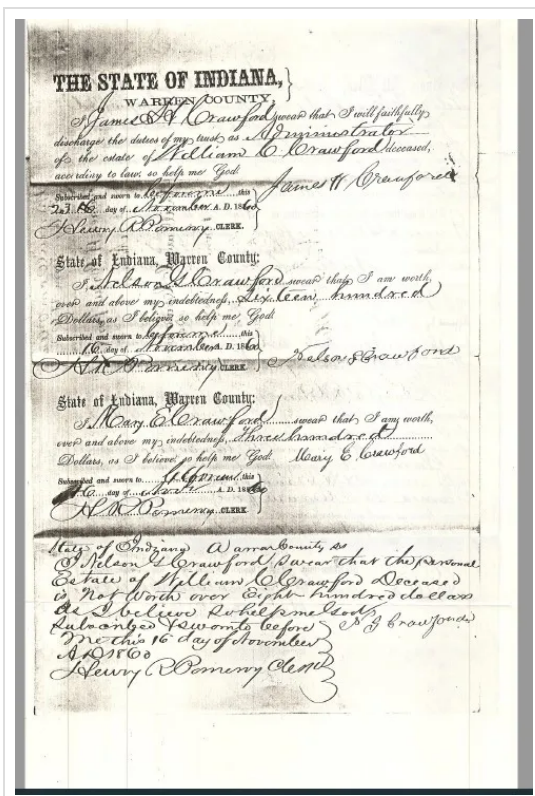 THE STATE OF INDIANA,
WARREN COUNTY,
I James H Crawford swear that I will faithfully
discharge the duties of my trust as Administrator
of the estate of William C Crawford deceased,
according to law, so help me God.
James H Crawford
Subscribed and sworn to before me this
day of November A. D. 1860
Henry R Pomeroy CLERK.
State of Indiana, Warren County:
I, Nelson G Crawford swear that I am worth,
over and above my indebtedness, Sixteen hundred
Dollars, as I believe, so help me God.
Subscribed and sworn to before me this
16 day of November A. D. 1860
Nelson G Crawford
H R Pomeroy CLERK.
State of Indiana, Warren County:
I, Mary E Crawford swear that I am worth,
over and above my indebtedness, Three hundred
Dollars, as I believe, so help me God.
Mary E. Crawford
Subscribed and sworn to before me this
16 day of A. D. 1860
H R Pomeroy CLERK.
State of Indiana Warren County ss
I Nelson G Crawford swear that the personal
Estate of William C Crawford Deceased
is Not Worth over Eight hundred dollars
As I believe so help me God
Subscribed & sworn to before N G Crawford
me this 16 day of November
AD 1860
Henry R Pomeroy Clerk